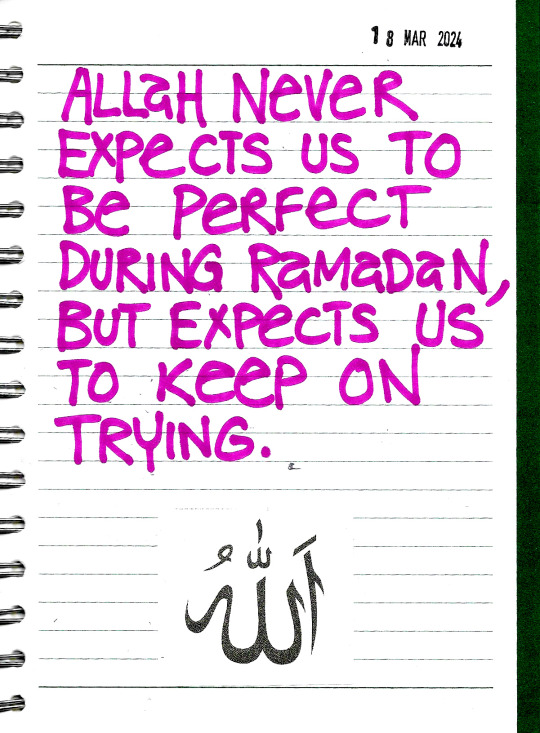 18 MAR 2024
ALLaH NeVeR
EXPeCTS US TO
Be PeRFeCT
DURING RaMaDaN,
BUT EXPeCTS US
TO KeeP ON
TRYING.
الله